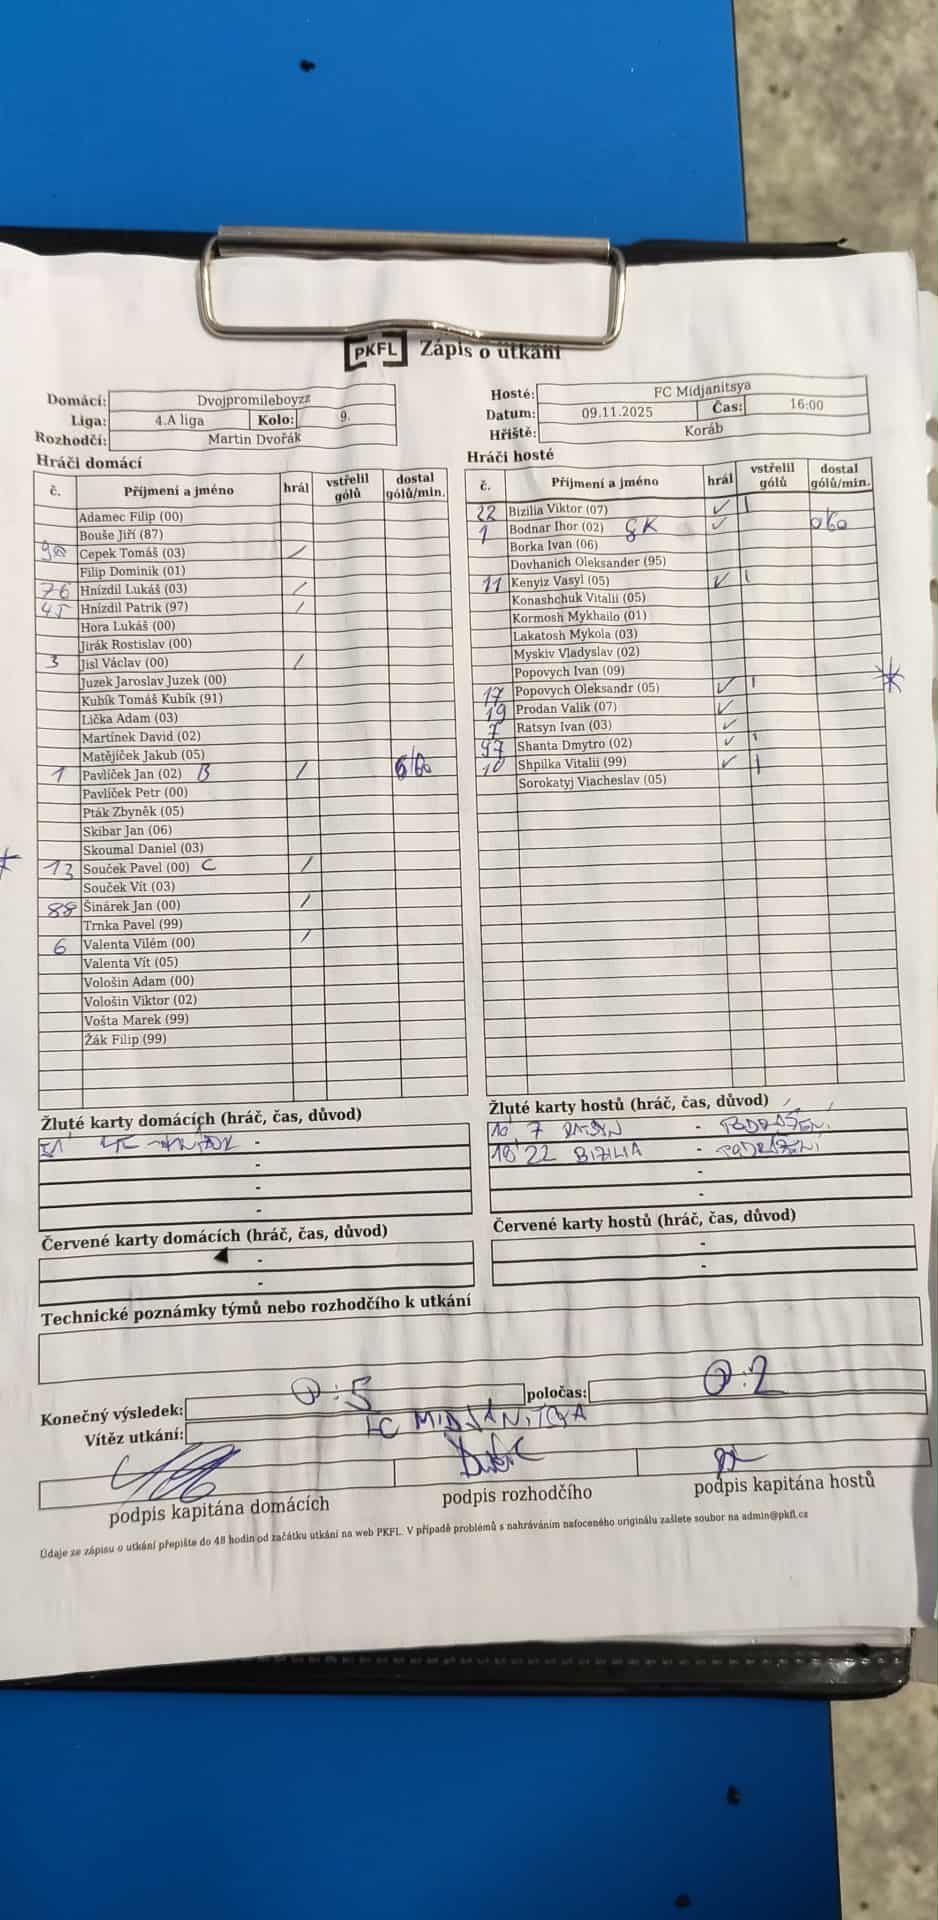 PKFL Zápis o utkání
Domácí: Dvojpromileboyzz
Liga: 4.A liga Kolo: 9.
Rozhodčí: Martin Dvořák
Hosté: FC Midjanitsya
Datum: 09.11.2025 Čas: 16:00
Hřiště: Koráb
Hráči domácí
č. Příjmení a jméno hrál vstřelil gólů dostal gólů/min.
Adamec Filip (00)
Bouše Jiří (87)
Cepek Tomáš (03) /
Filip Dominik (01)
76 Hnízdil Lukáš (03) /
45 Hnízdil Patrik (97) /
Hora Lukáš (00)
Jirák Rostislav (00)
3 Jisl Václav (00) /
Juzek Jaroslav Juzek (00)
Kubík Tomáš Kubík (91)
Lička Adam (03)
Martínek David (02)
Matějíček Jakub (05)
1 Pavlíček Jan (02) B /
Pavlíček Petr (00)
Pták Zbyněk (05)
Skibar Jan (06)
Skoumal Daniel (03)
13 Souček Pavel (00) C /
Souček Vít (03)
88 Šinárek Jan (00) /
Trnka Pavel (99)
6 Valenta Vilém (00) /
Valenta Vít (05)
Vološin Adam (00)
Vološin Viktor (02)
Vošta Marek (99)
Žák Filip (99)
Hráči hosté
č. Příjmení a jméno hrál vstřelil gólů dostal gólů/min.
22 Bizilia Viktor (07) ✓ |
1 Bodnar Ihor (02) GK ✓ 0/60
Borka Ivan (06)
Dovhanich Oleksander (95)
11 Kenyiz Vasyl (05) ✓ |
Konashchuk Vitalii (05)
Kormosh Mykhailo (01)
Lakatosh Mykola (03)
Myskiv Vladyslav (02)
Popovych Ivan (09)
17 Popovych Oleksandr (05) ✓ |
19 Prodan Valik (07) ✓
7 Ratsyn Ivan (03) ✓
97 Shanta Dmytro (02) ✓ |
10 Shpilka Vitalii (99) ✓ |
Sorokatyj Viacheslav (05)
Žluté karty domácích (hráč, čas, důvod)
-
-
-
-
Žluté karty hostů (hráč, čas, důvod)
10' 7 RATSYN - PODRÁŽENÍ
18' 22 BIZILIA - PODRÁŽENÍ
-
-
Červené karty domácích (hráč, čas, důvod)
-
-
Červené karty hostů (hráč, čas, důvod)
-
-
Technické poznámky týmů nebo rozhodčího k utkání
Konečný výsledek: 0:5 poločas: 0:2
Vítěz utkání: FC MIDJANITSYA
podpis kapitána domácích podpis rozhodčího podpis kapitána hostů
Údaje ze zápisu o utkání přepište do 48 hodin od začátku utkání na web PKFL. V případě problémů s nahráváním nafoceného originálu zašlete soubor na admin@pkfl.cz